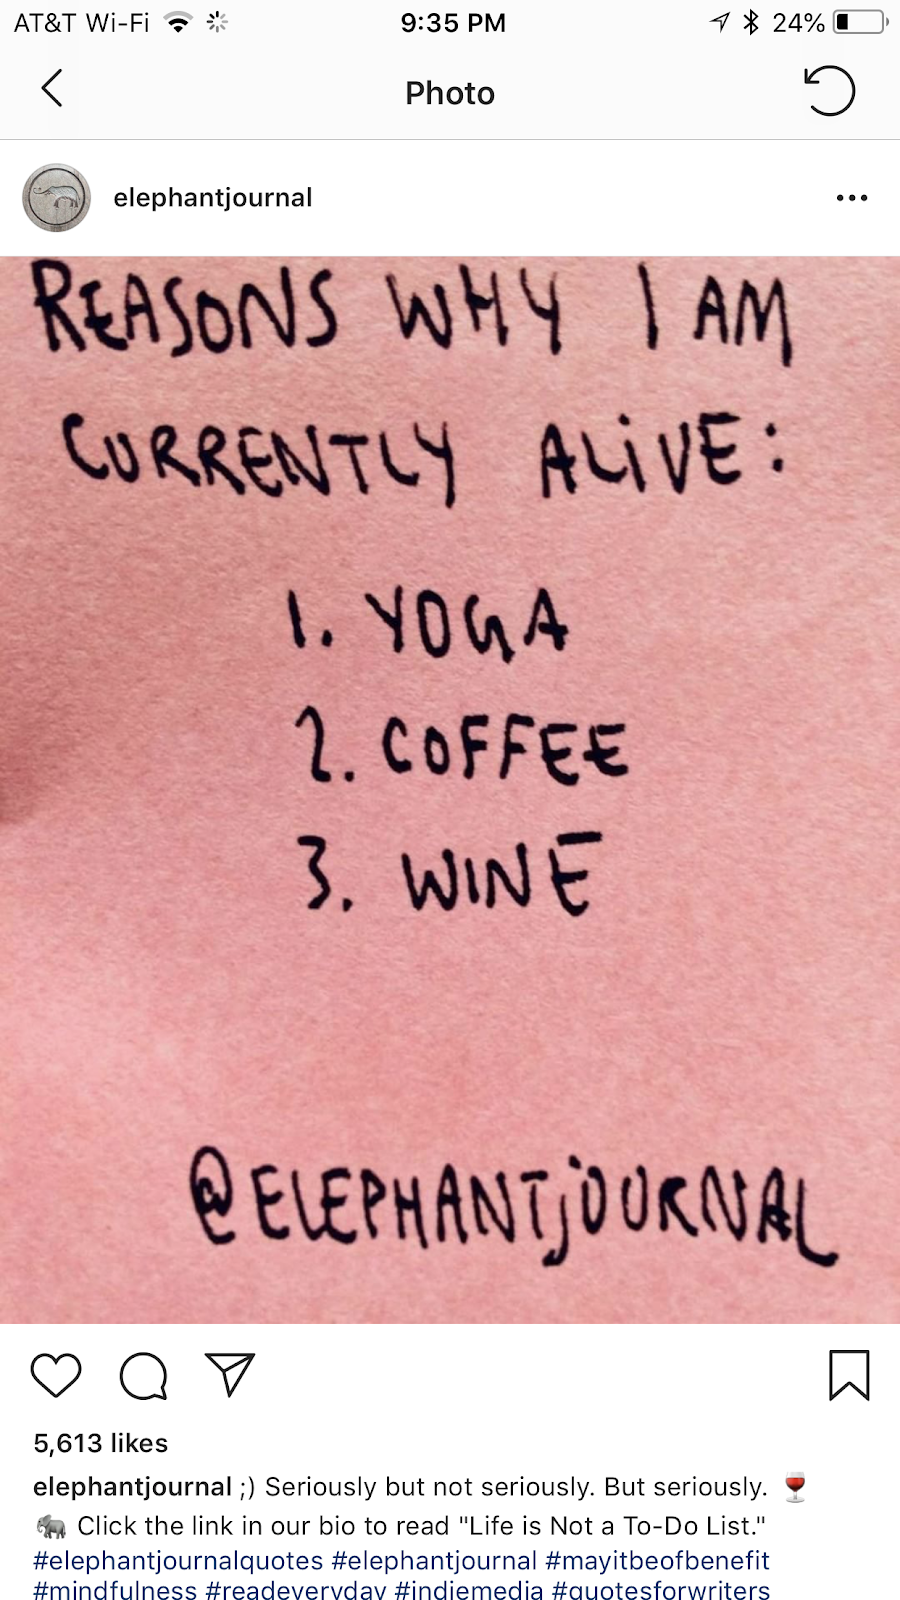 AT&T Wi-Fi 9:35 PM 24%
Photo
elephantjournal
REASONS WHY I AM
CURRENTLY ALiVE:
1. YOGA
2. COFFEE
3. WINE
@ELEPHANTjOURNAL
5,613 likes
elephantjournal ;) Seriously but not seriously. But seriously. 🍷
🐘 Click the link in our bio to read "Life is Not a To-Do List."
#elephantjournalquotes #elephantjournal #mayitbeofbenefit
#mindfulness #readeveryday #indiemedia #quotesforwriters